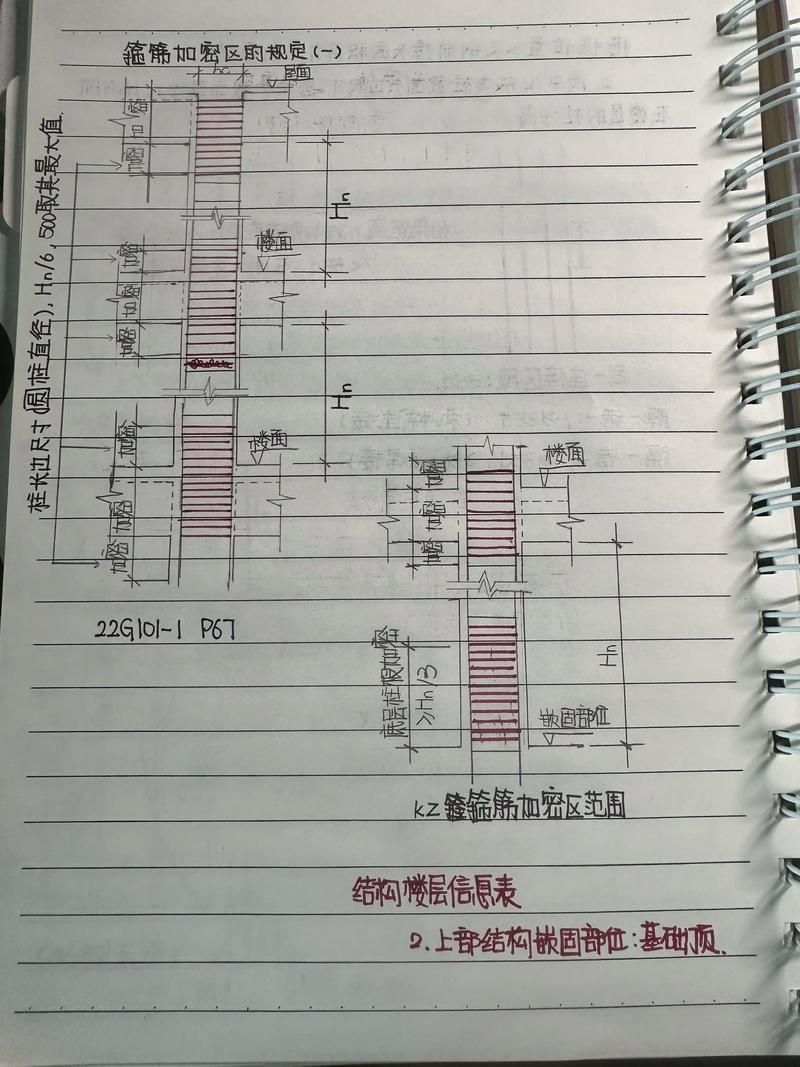 箍筋加密区的规定(一)
hc
屋面
加密
加密
柱长边尺寸(圆柱直径), Hn/6, 500取其最大值.
Hn
楼面
加密
加密
加密
Hn
楼面
加密
加密
加密
22G101-1 P67
楼面
加密
加密
加密
底层柱根加密
≥Hn/3
Hn
嵌固部位
KZ 箍筋加密区范围
结构楼层信息表
2.上部结构嵌固部位:基础顶.